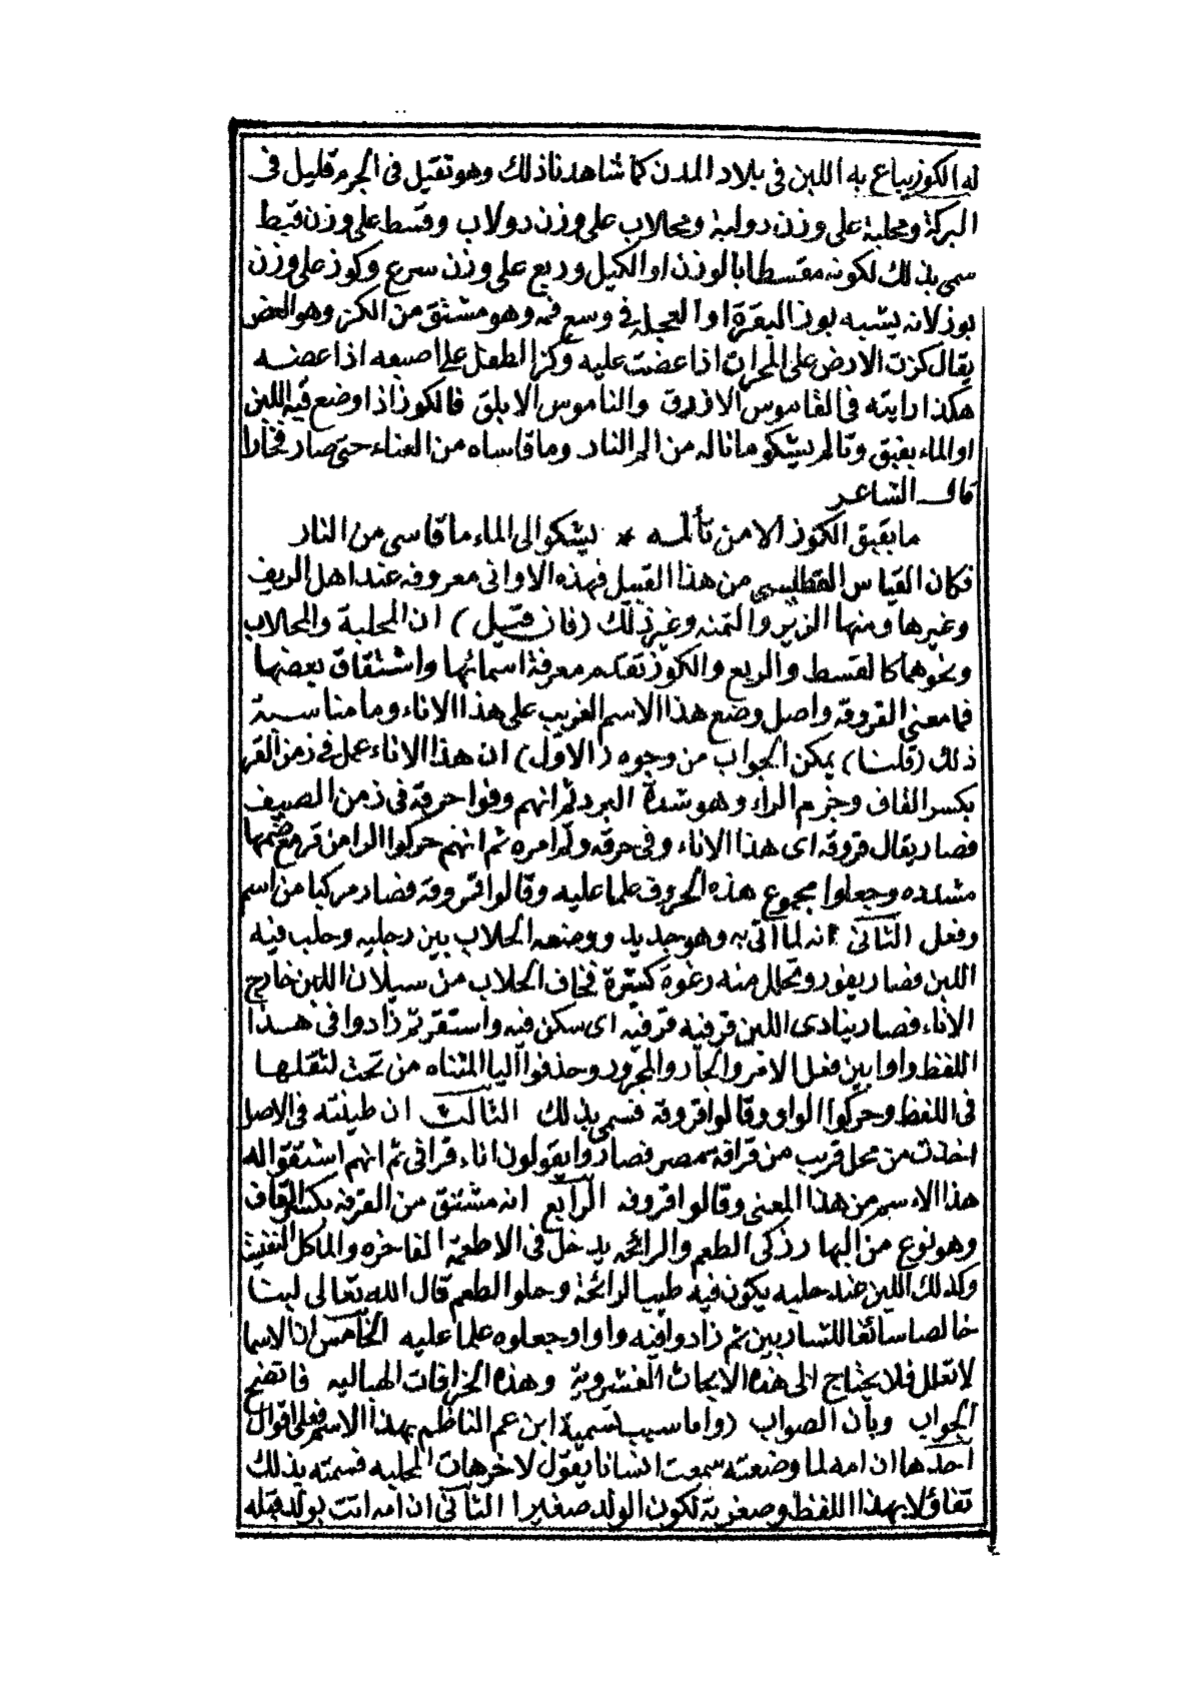 له الكوز يباع به اللبن في بلاد المدن كما شاهدنا ذلك وهو ثقيل في الجرم قليل في
البركة ومحلبة على وزن دولبة ومحلاب على وزن دولاب وقسط على وزن قبط
سمي بذلك لكونه مقسطا بالوزن او الكيل وربع على وزن سرع وكوز على وزن
بوز لانه يشبه بوز البقرة او العجلة في وسع فمه وهو مشتق من الكز وهو العض
يقال كزت الارض على المحراث اذا عضت عليه وكز الطفل على اصبعه اذا عضه
هكذا رايته في القاموس الازرق والناموس الابلق فالكوز اذا وضع فيه اللبن
او الماء بقبق وتالم يشكو ما ناله من الم النار وما قاساه من العناء حتى صار فخارا
قال الشاعر
ما بقبق الكوز الا من تألمه * يشكو الى الماء ما قاسى من النار
فكان القياس من هذا القبيل فهذه الاواني معروفه عند اهل الريف
وغيرها ومنها الزير والتمنه وغير ذلك (فان قيل) ان المحلبة والمحلاب
ونحوهما كالقسط والربع والكوز تقدم معرفة اسمائها واشتقاق بعضها
فما معنى القروفه واصل وضع هذا الاسم الغريب على هذا الاناء وما مناسبة
ذلك (قلنا) يمكن الجواب من وجوه (الاول) ان هذا الاناء عمل في زمن القر
بكسر القاف وجزم الراء وهو شدة البرد ثم انهم وفوا حرقه في زمن الصيف
فصار يقال قروفه اى هذا الاناء وفي حرقه ولد امره ثم انهم حركوا الرا من قر مع ضمها
مشدده وجعلوا مجموع هذه الحروف علما عليه وقالوا قروفة فصار مركبا من اسم
وفعل الثاني انه لما اتى به وهو جديد ووضعه الحلاب بين رجليه وحلب فيه
اللبن فصار يفور وتحلل منه رغوة كثيرة فخاف الحلاب من سيلان اللبن خارج
الاناء فصار ينادى اللبن قر فيه قر فيه اى سكن فيه واستقر ثم زادوا في هذا
اللفظ واوا بين فعل الامر والجار والمجرور وحذفوا اليا المثناه من تحت لثقلها
في اللفظ وحركوا الواو وقالوا قروفة فسمي بذلك الثالث ان طينته في الاصل
اخذت من محل قريب من قرافة مصر فصاروا يقولون اناء قرافى ثم انهم اشتقوا له
هذا الاسم من هذا المعنى وقالوا قروفه الرابع انه مشتق من القرفه بكسر القاف
وهو نوع من البهار ذكى الطعم والرائحه يدخل في الاطعمة الفاخره والماكل النفيسة
وكذلك اللبن عند حلبه يكون فيه طيب الرائحة وحلو الطعم قال الله تعالى لبنا
خالصا سائغا للشاربين ثم زادوا فيه واوا وجعلوه علما عليه الخامس ان الاسما
لا تعلل فلا يحتاج الى هذه الابحاث الفشروية وهذه الخرافات الهباليه فاتضح
الجواب وبان الصواب (واما سبب تسمية ابن عم الناظم بهذا الاسم فعلى اقوال
احدها ان امه لما وضعته سمعت انسانا يقول لاخر هات المحلبه فسمته بذلك
تفاؤلا بهذا اللفظ وصغرته لكون الولد صغيرا الثاني ان امه اتت بولد قبله